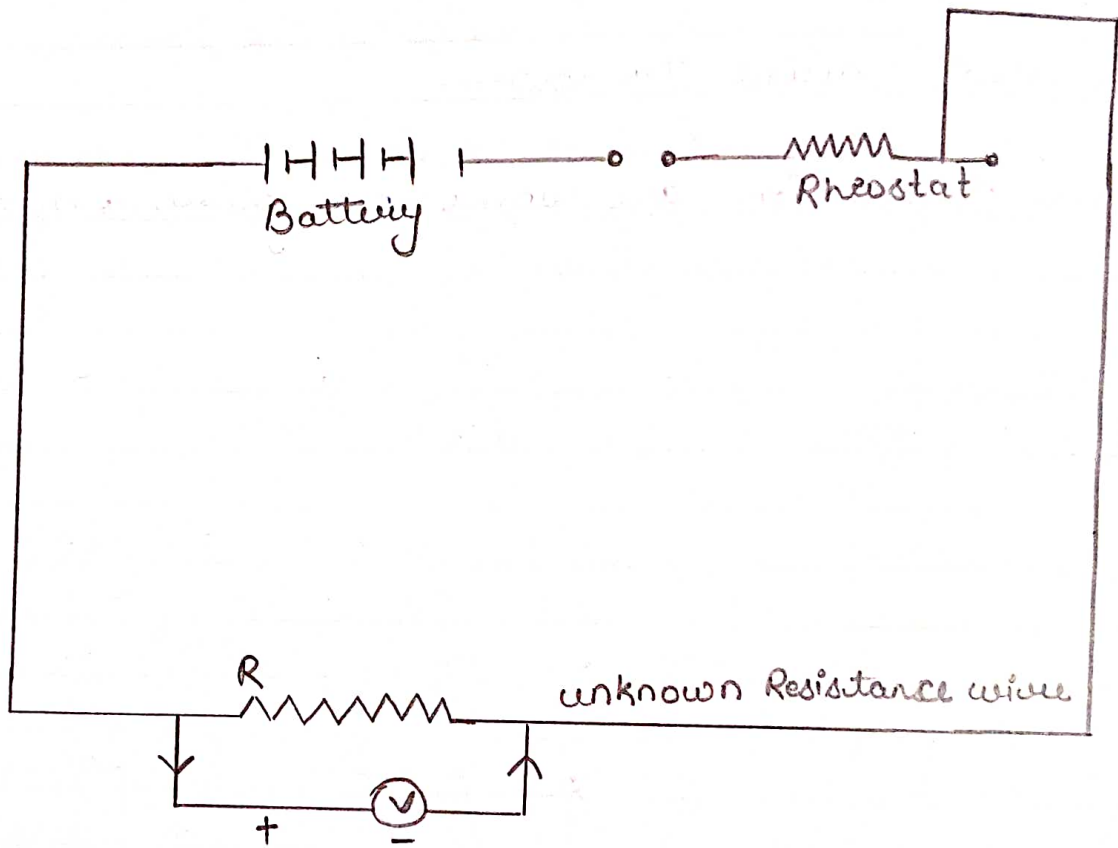 Battery
Rheostat
R
unknown Resistance wire
V
+
-